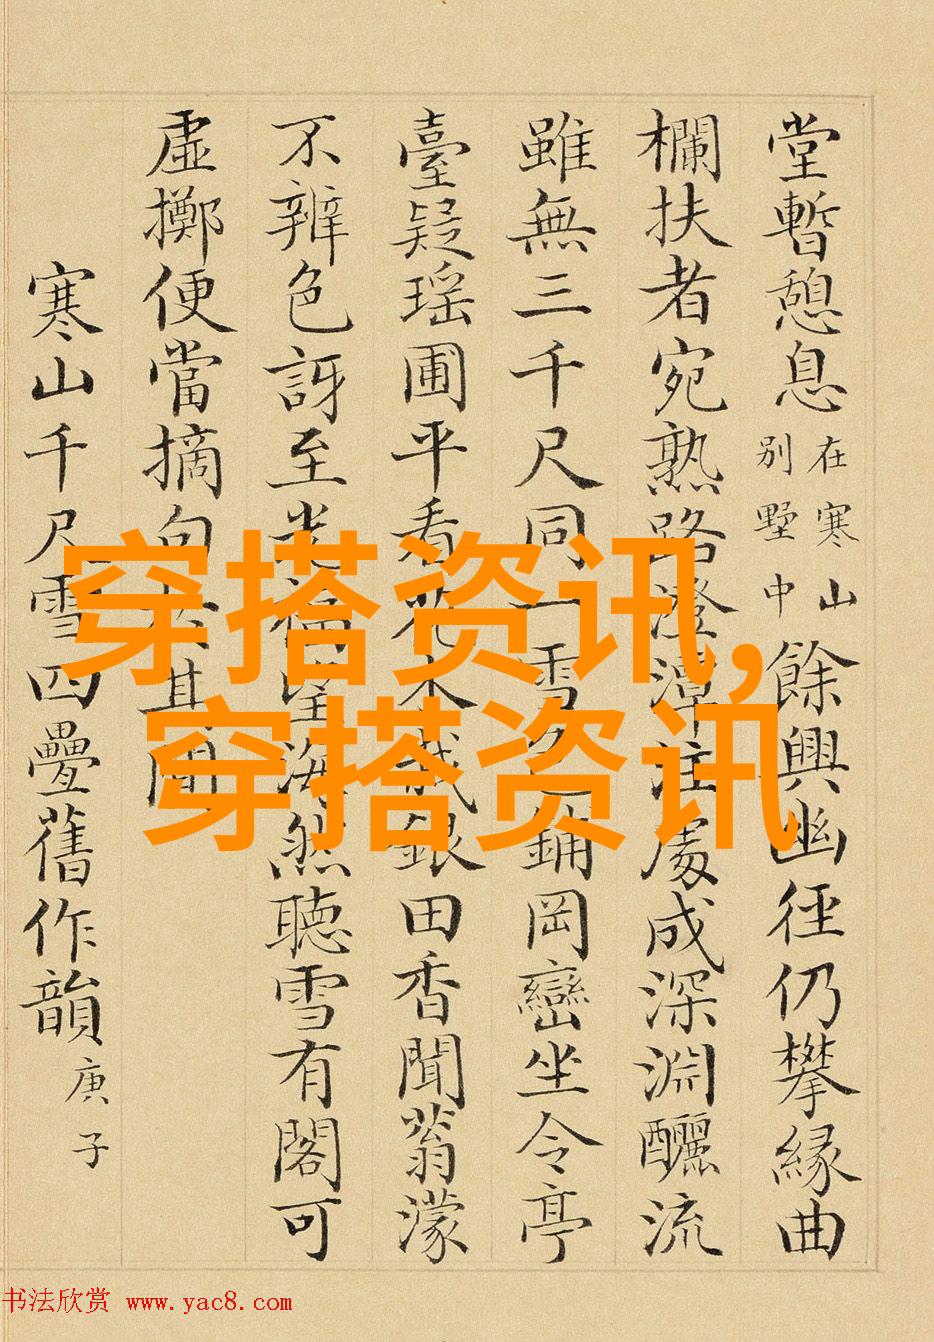 堂暫憩息在寒山別墅中餘興幽徑仍攀緣曲
欄扶者宛熟路澄潭注處成深淵釃流
雖無三千尺同一雪鋪岡巒坐令亭
臺疑瑶圃平看花木銀田香聞蓊濛
不辨色訝至光福海然聽雪有閣可
虛擲便當摘句其間
寒山千尺雪四疊舊作韻庚子
穿搭资讯,
穿搭资讯
书法欣赏 www.yac8.com